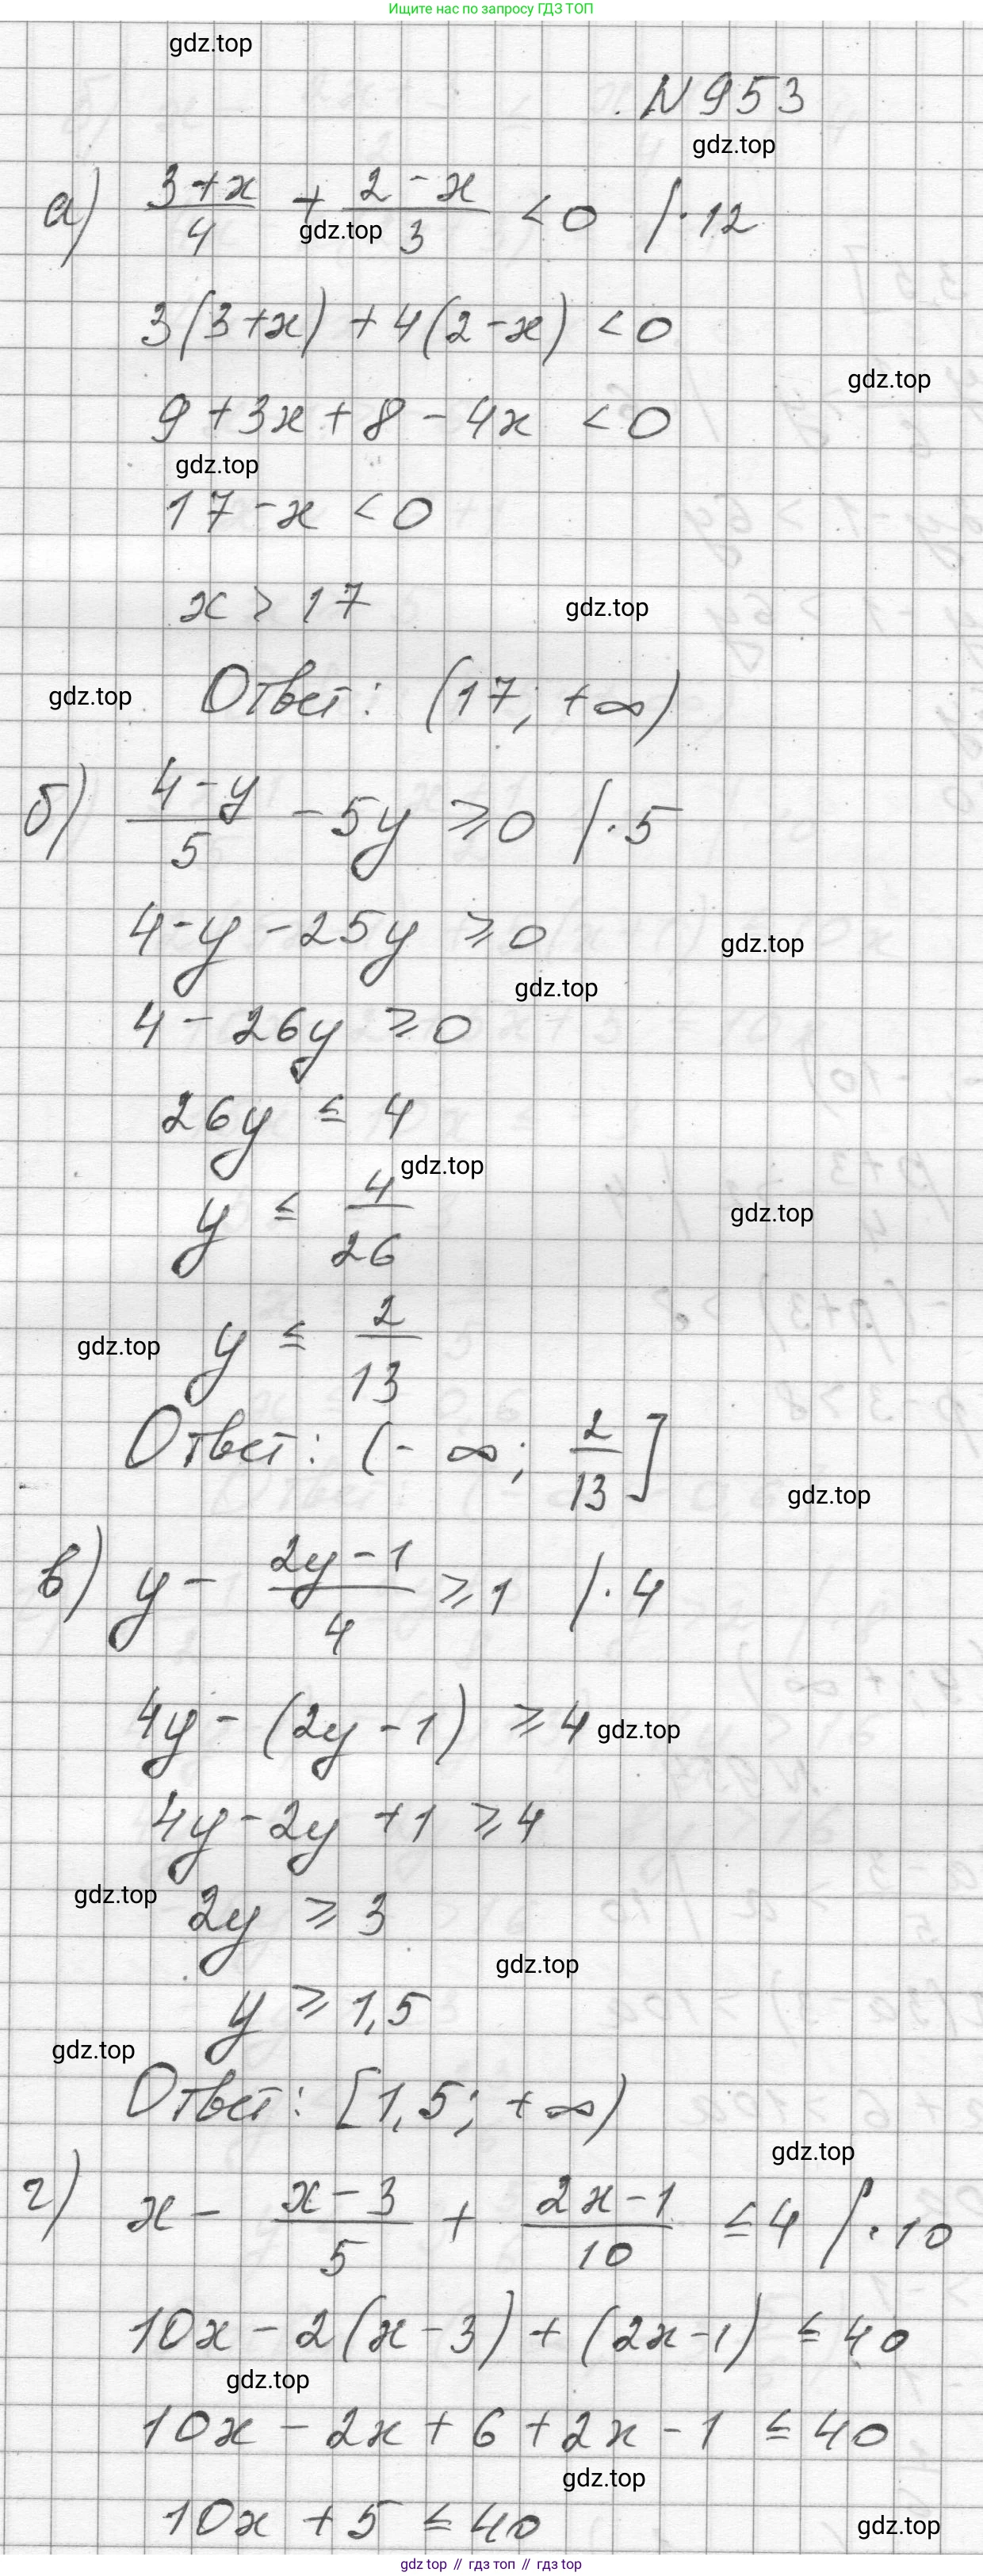 Ищите по запросу ГДЗ ТОП
gdz.top
N 953
gdz.top
а) (3+x)/4 + (2-x)/3 < 0 /·12
gdz.top
3(3+x) + 4(2-x) < 0
gdz.top
9 + 3x + 8 - 4x < 0
gdz.top
17 - x < 0
x > 17
gdz.top
gdz.top
Ответ: (17; +∞)
б) (4-y)/5 - 5y ⩾ 0 /·5
4 - y - 25y ⩾ 0
gdz.top
gdz.top
4 - 26y ⩾ 0
26y ≤ 4
gdz.top
y ≤ 4/26
gdz.top
gdz.top
y ≤ 2/13
Ответ: (-∞; 2/13]
gdz.top
в) y - (2y-1)/4 ⩾ 1 /·4
4y - (2y - 1) ⩾ 4
gdz.top
4y - 2y + 1 ⩾ 4
gdz.top
2y ⩾ 3
gdz.top
y ⩾ 1,5
gdz.top
Ответ: [1,5; +∞)
gdz.top
г) x - (x-3)/5 + (2x-1)/10 ≤ 4 /·10
10x - 2(x-3) + (2x-1) ≤ 40
gdz.top
10x - 2x + 6 + 2x - 1 ≤ 40
gdz.top
10x + 5 ≤ 40
gdz.top
gdz top // гдз топ // gdz top